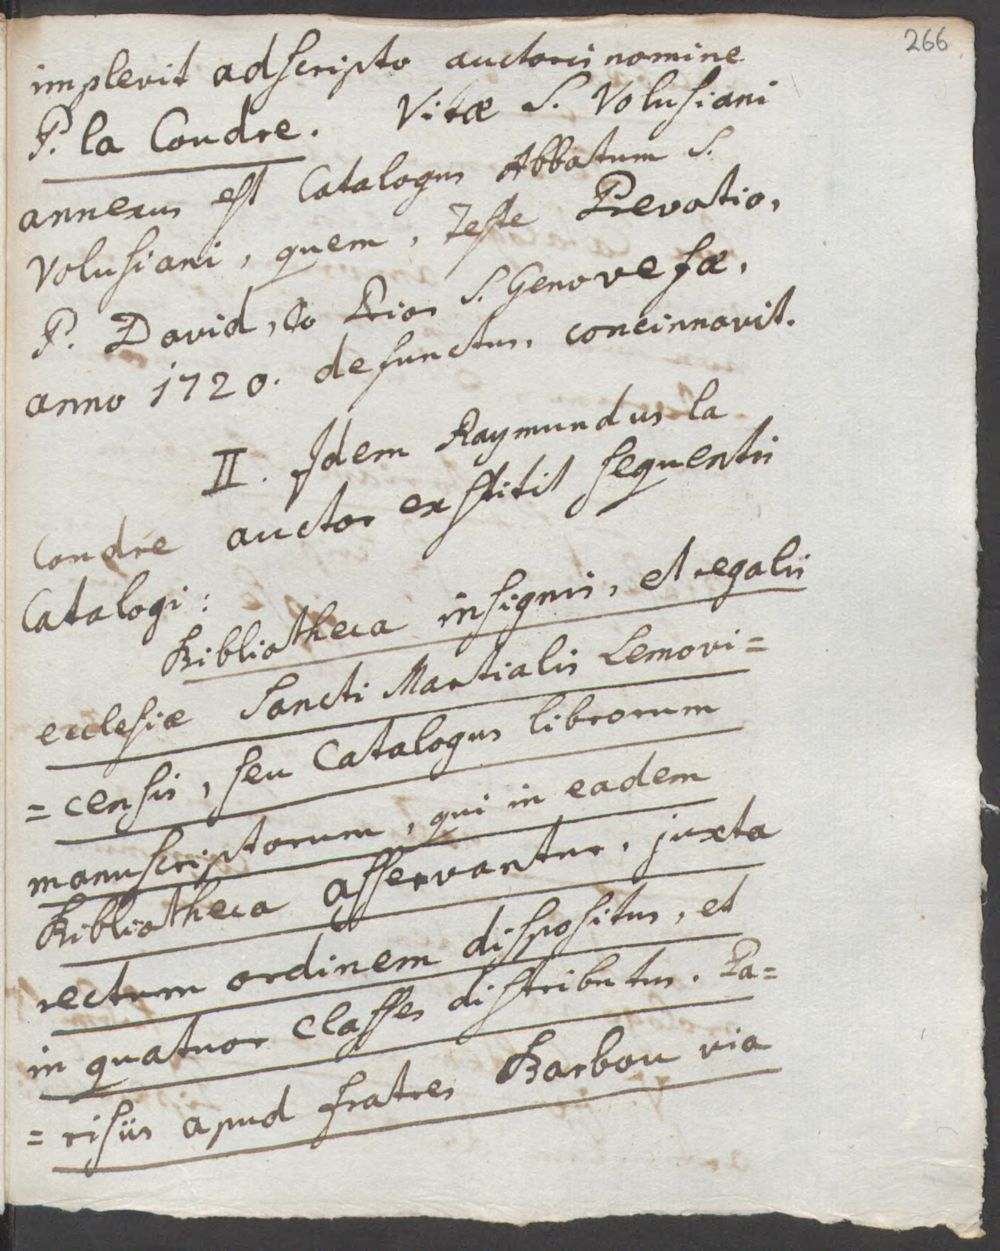 266
implevit adscripto auctoris nomine
P. la Coudre. Vitæ S. Volusiani
annexus est Catalogus Abbatum S.
Volusiani, quem, teste Prevotio,
P. David, Prior S. Genovefæ,
anno 1720. defunctus, concinnavit.
II. Idem Raymundus la
Coudre auctor exstitit sequentis
Catalogi:
Bibliotheca insignis, et regalis
ecclesiæ Sancti Martialis Lemovi=
=censis, seu Catalogus librorum
manuscriptorum, qui in eadem
Bibliotheca asservantur, juxta
rectum ordinem dispositus, et
in quatuor Classes distributus. Pa=
=risiis apud fratres Barbou via